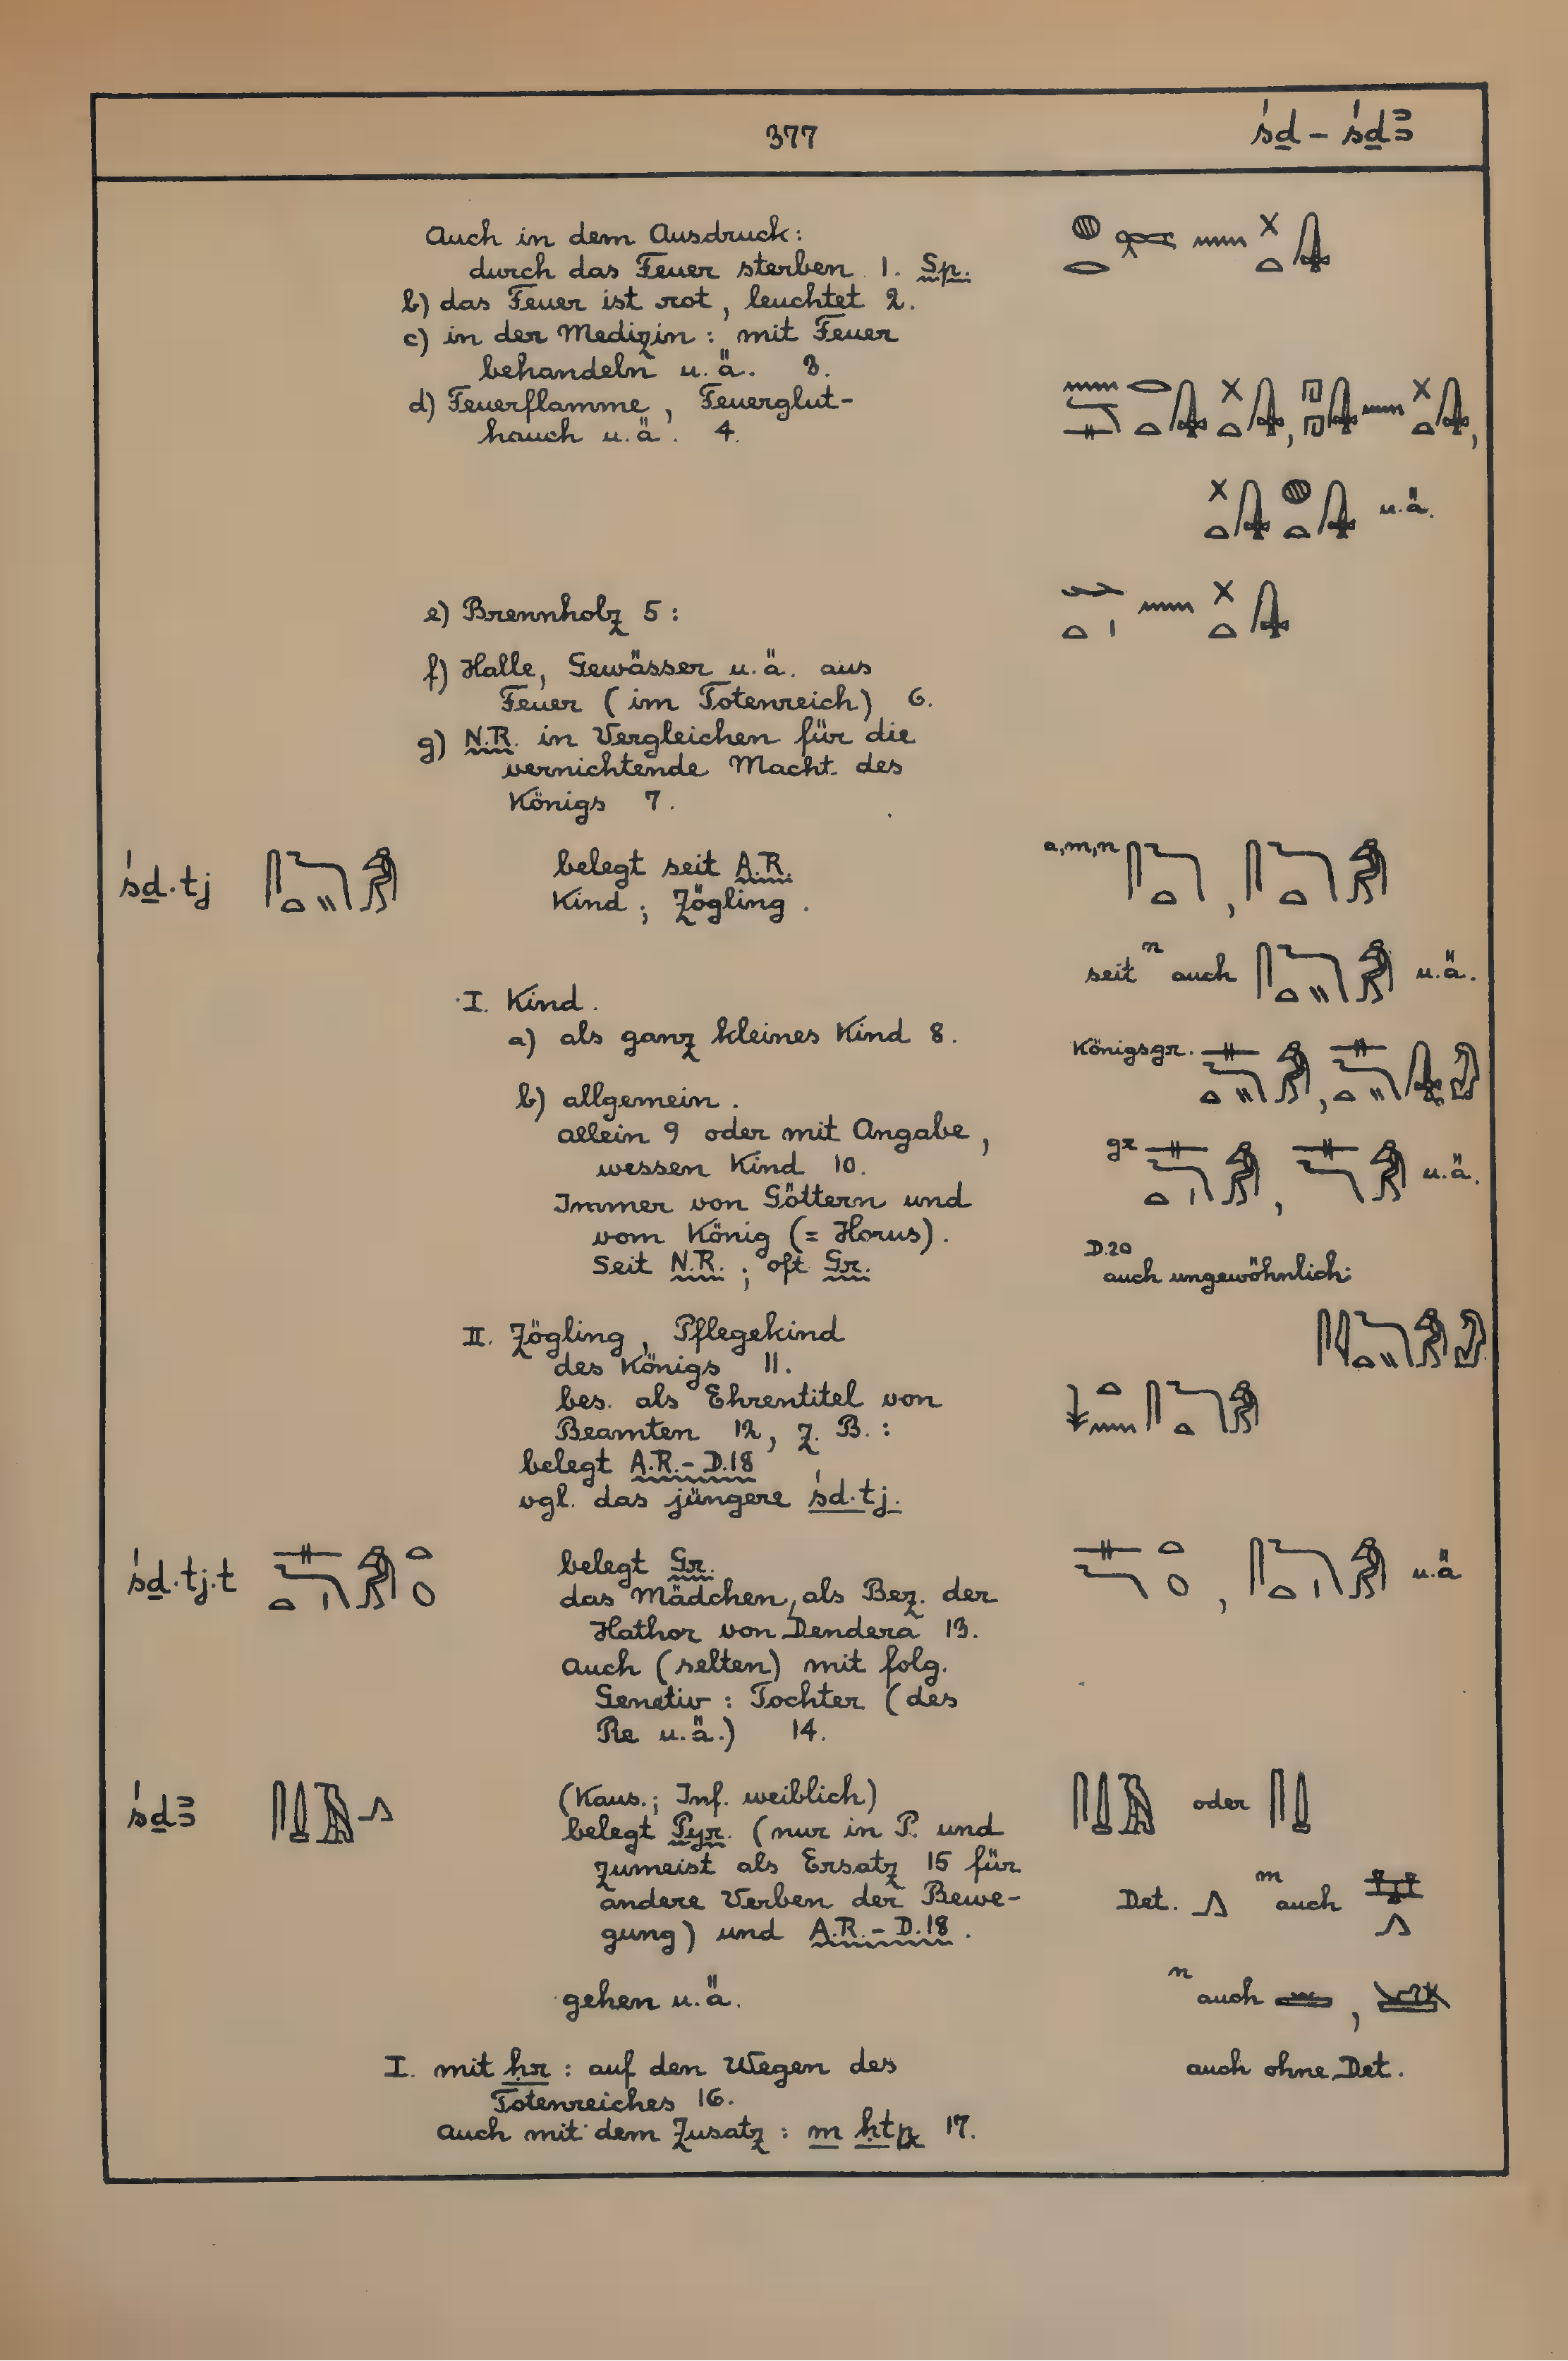 377
śḏ – śḏꜣ
Auch in dem Ausdruck:
durch das Feuer sterben 1. Sp.
b) das Feuer ist rot, leuchtet 2.
c) in der Medizin: mit Feuer
behandeln u.ä. 3.
d) Feuerflamme, Feuerglut-
hauch u.ä. 4.
u.ä.
e) Brennholz 5:
f) Halle, Gewässer u.ä. aus
Feuer (im Totenreich) 6.
g) N.R. in Vergleichen für die
vernichtende Macht des
Königs 7.
śḏ.tj
belegt seit A.R.
Kind; Zögling.
a,m,n
seit n auch u.ä.
I. Kind.
a) als ganz kleines Kind 8.
Königsgr.
b) allgemein.
allein 9 oder mit Angabe,
wessen Kind 10.
gr u.ä.
Immer von Göttern und
vom König (= Horus).
Seit N.R.; oft Gr.
D.20
auch ungewöhnlich:
II. Zögling, Pflegekind
des Königs 11.
bes. als Ehrentitel von
Beamten 12, z. B.:
belegt A.R.-D.18
vgl. das jüngere śd.tj.
śḏ.tj.t
belegt Gr.
u.ä
das Mädchen, als Bez. der
Hathor von Dendera 13.
Auch (selten) mit folg.
Genetiv: Tochter (des
Re u.ä.) 14.
śḏꜣ
(Kaus.; Inf. weiblich)
oder
belegt Pyr. (nur in P. und
zumeist als Ersatz 15 für
andere Verben der Bewe-
gung) und A.R.-D.18.
Det. m auch
gehen u.ä.
n auch
I. mit ḥr: auf den Wegen des
Totenreiches 16.
auch ohne Det.
Auch mit dem Zusatz: m ḥtp 17.